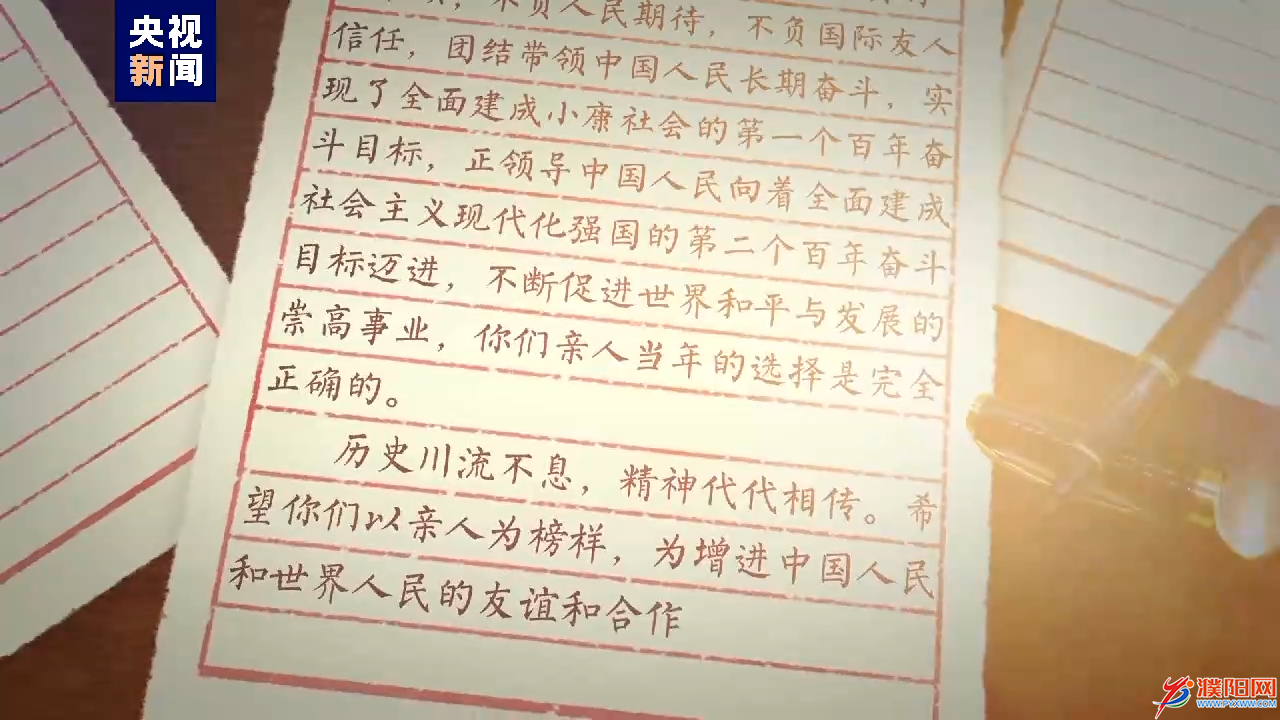 央视
新闻
不负人民期待，不负国际友人
信任，团结带领中国人民长期奋斗，实
现了全面建成小康社会的第一个百年奋
斗目标，正领导中国人民向着全面建成
社会主义现代化强国的第二个百年奋斗
目标迈进，不断促进世界和平与发展的
崇高事业，你们亲人当年的选择是完全
正确的。
历史川流不息，精神代代相传。希
望你们以亲人为榜样，为增进中国人民
和世界人民的友谊和合作
濮阳网
WWW.PYXWW.COM